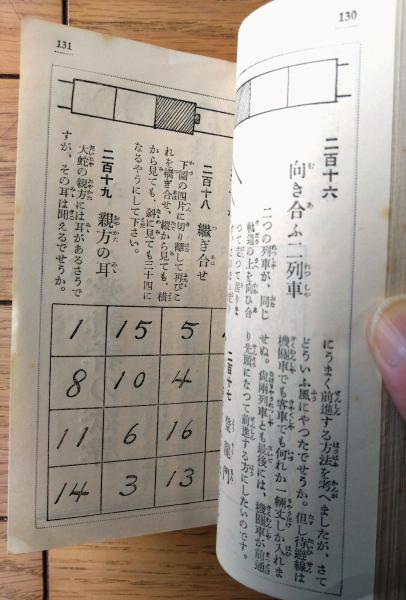 130
二百十六
向き合ふ二列車
二つの列車が、同じ
軌道の上を向ひ合
にうまく前進する方法を考へましたが、さて
どういふ風にやつたでせうか。但し待避線は
機關車でも客車でも何れか一輛丈しか入れま
せぬ。尙兩列車とも最後には、機關車が前通
り先頭になつて前進する方にしたいのです。
131
二百十七
登龍門
二百十八 繼ぎ合せ
下圖の四片に切り離して再びこ
れを繼ぎ合せ、縱から見ても、橫
から見ても、斜に見ても三十四に
なるやうにして下さい。
二百十九 親方の耳
大蛇の親方には耳があるさうで
すが、その耳は聞えるでせうか。
1 15 5
8 10 4
11 6 16
14 3 13